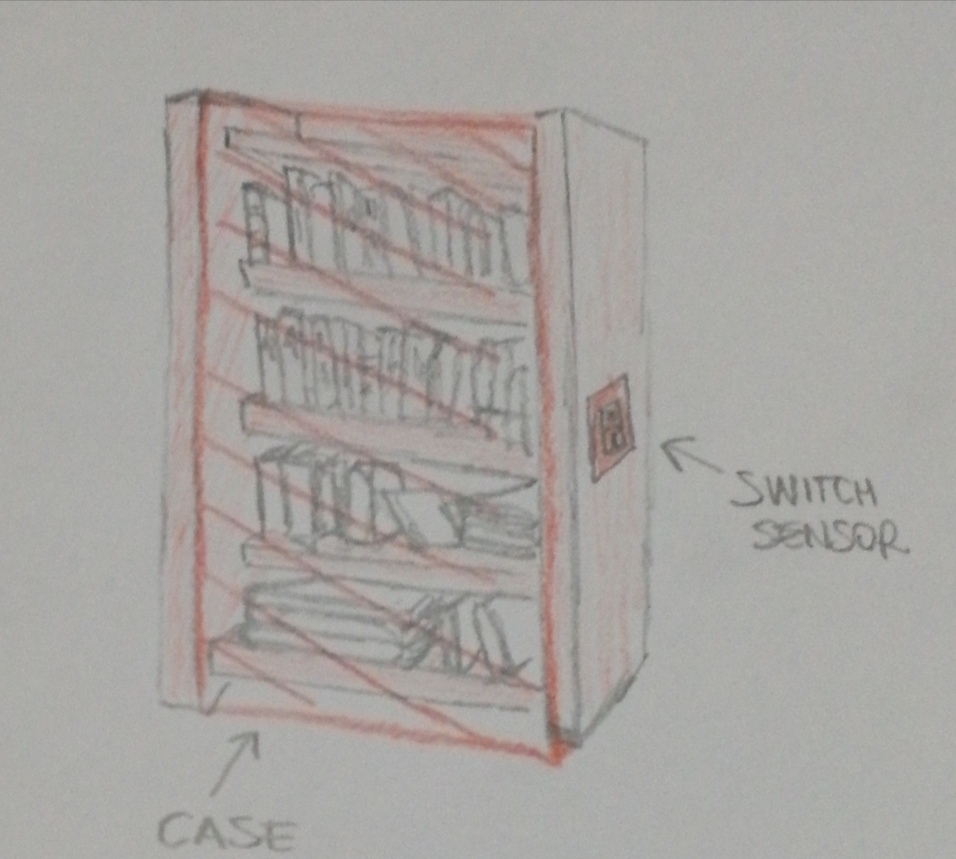 SWITCH
SENSOR
CASE